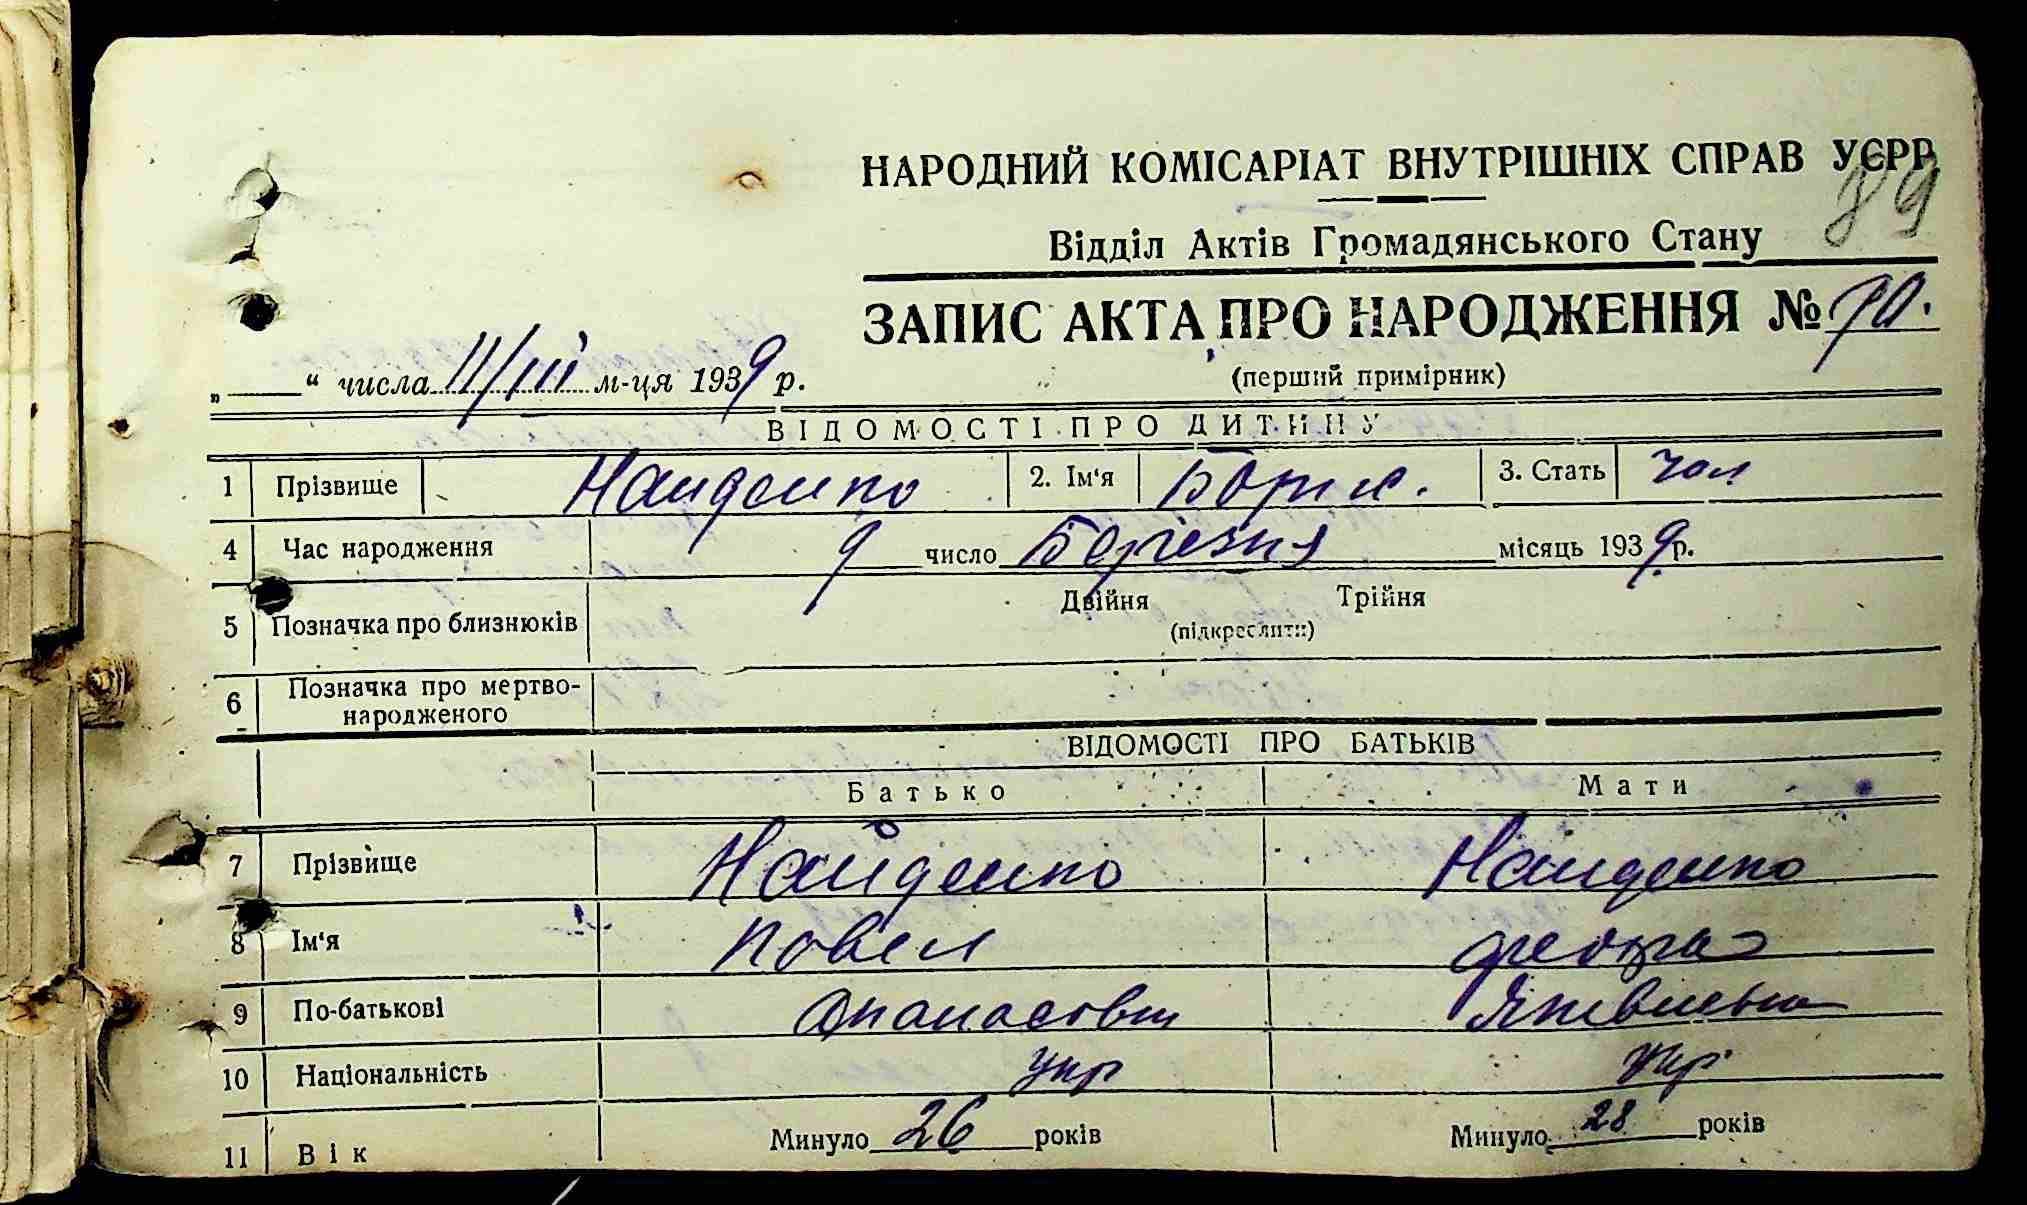 НАРОДНИЙ КОМІСАРІАТ ВНУТРІШНІХ СПРАВ УСРР
89
Відділ Актів Громадянського Стану
ЗАПИС АКТА ПРО НАРОДЖЕННЯ № 90.
„ “ числа 11/III м-ця 1939 р.
(перший примірник)
ВІДОМОСТІ ПРО ДИТИНУ
1 Прізвище Найденко 2. Ім‘я Борис. 3. Стать чол
4 Час народження 9 число Березня місяць 1939 р.
5 Позначка про близнюків Двійня Трійня
(підкреслити)
6 Позначка про мертво-
народженого
ВІДОМОСТІ ПРО БАТЬКІВ
Батько Мати
7 Прізвище Найденко Найденко
8 Ім‘я Павел
9 По-батькові Опанасович Яківлевна
10 Національність укр укр
11 Вік Минуло 26 років Минуло 28 років